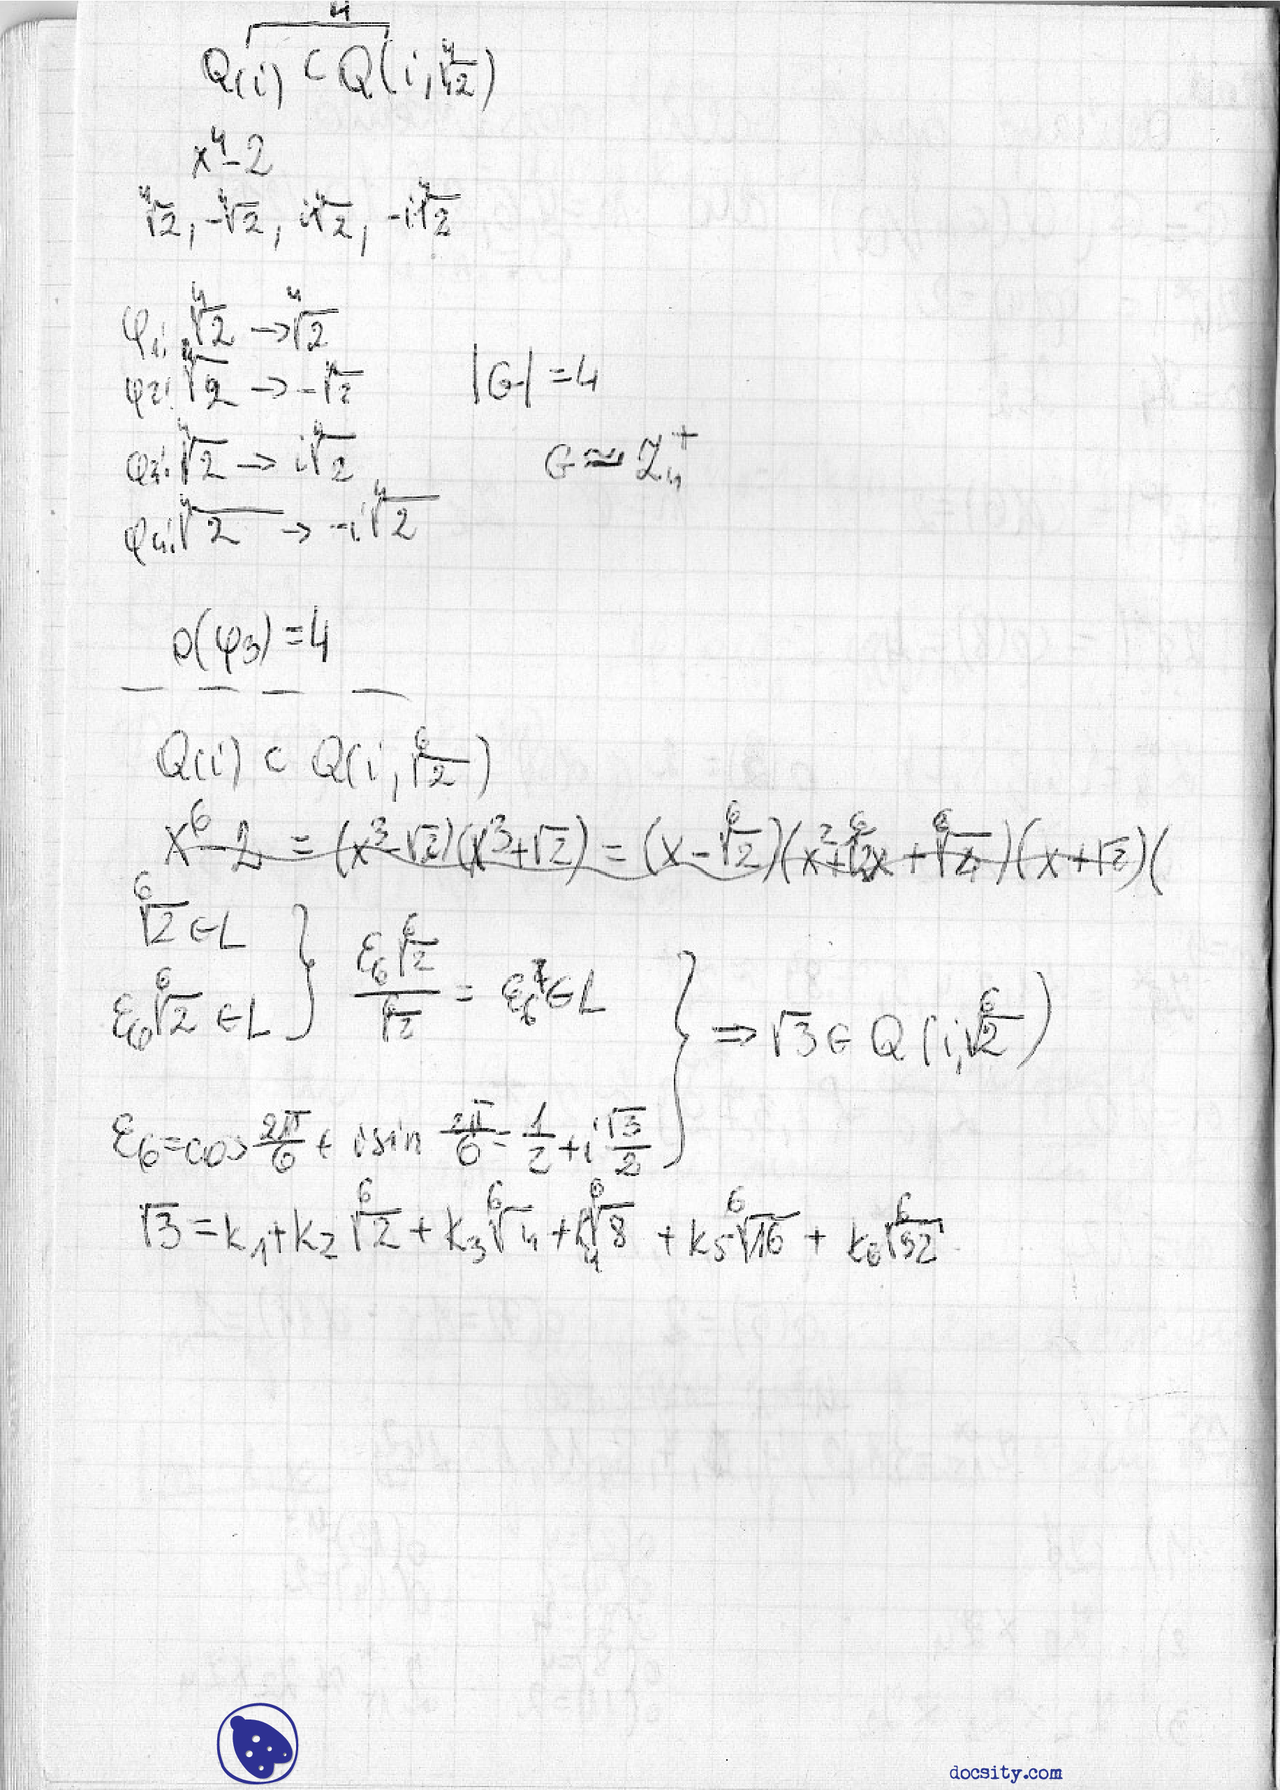 4
Q(i) ⊂ Q(i, ⁴√2)
x⁴-2
⁴√2, -⁴√2, i⁴√2, -i⁴√2
φ₁: ⁴√2 → ⁴√2
φ₂: ⁴√2 → -⁴√2
|G| = 4
φ₃: ⁴√2 → i⁴√2
G ≃ Z₄⁺
φ₄: ⁴√2 → -i⁴√2
o(φ₃) = 4
Q(i) ⊂ Q(i, ⁶√2)
x⁶-2 = (x³-√2)(x³+√2) = (x-⁶√2)(x²+⁶√2x+⁶√4)(x+√2)(
⁶√2 ∈ L
ε₆⁶√2 ∈ L
ε₆⁶√2 / ⁶√2 = ε₆ ∈ L
⇒ √3 ∈ Q(i, ⁶√2)
ε₆ = cos 2π/6 + i sin 2π/6 = 1/2 + i √3/2
√3 = k₁+k₂⁶√2 + k₃⁶√4 + k₄⁶√8 + k₅⁶√16 + k₆⁶√32
docsity.com